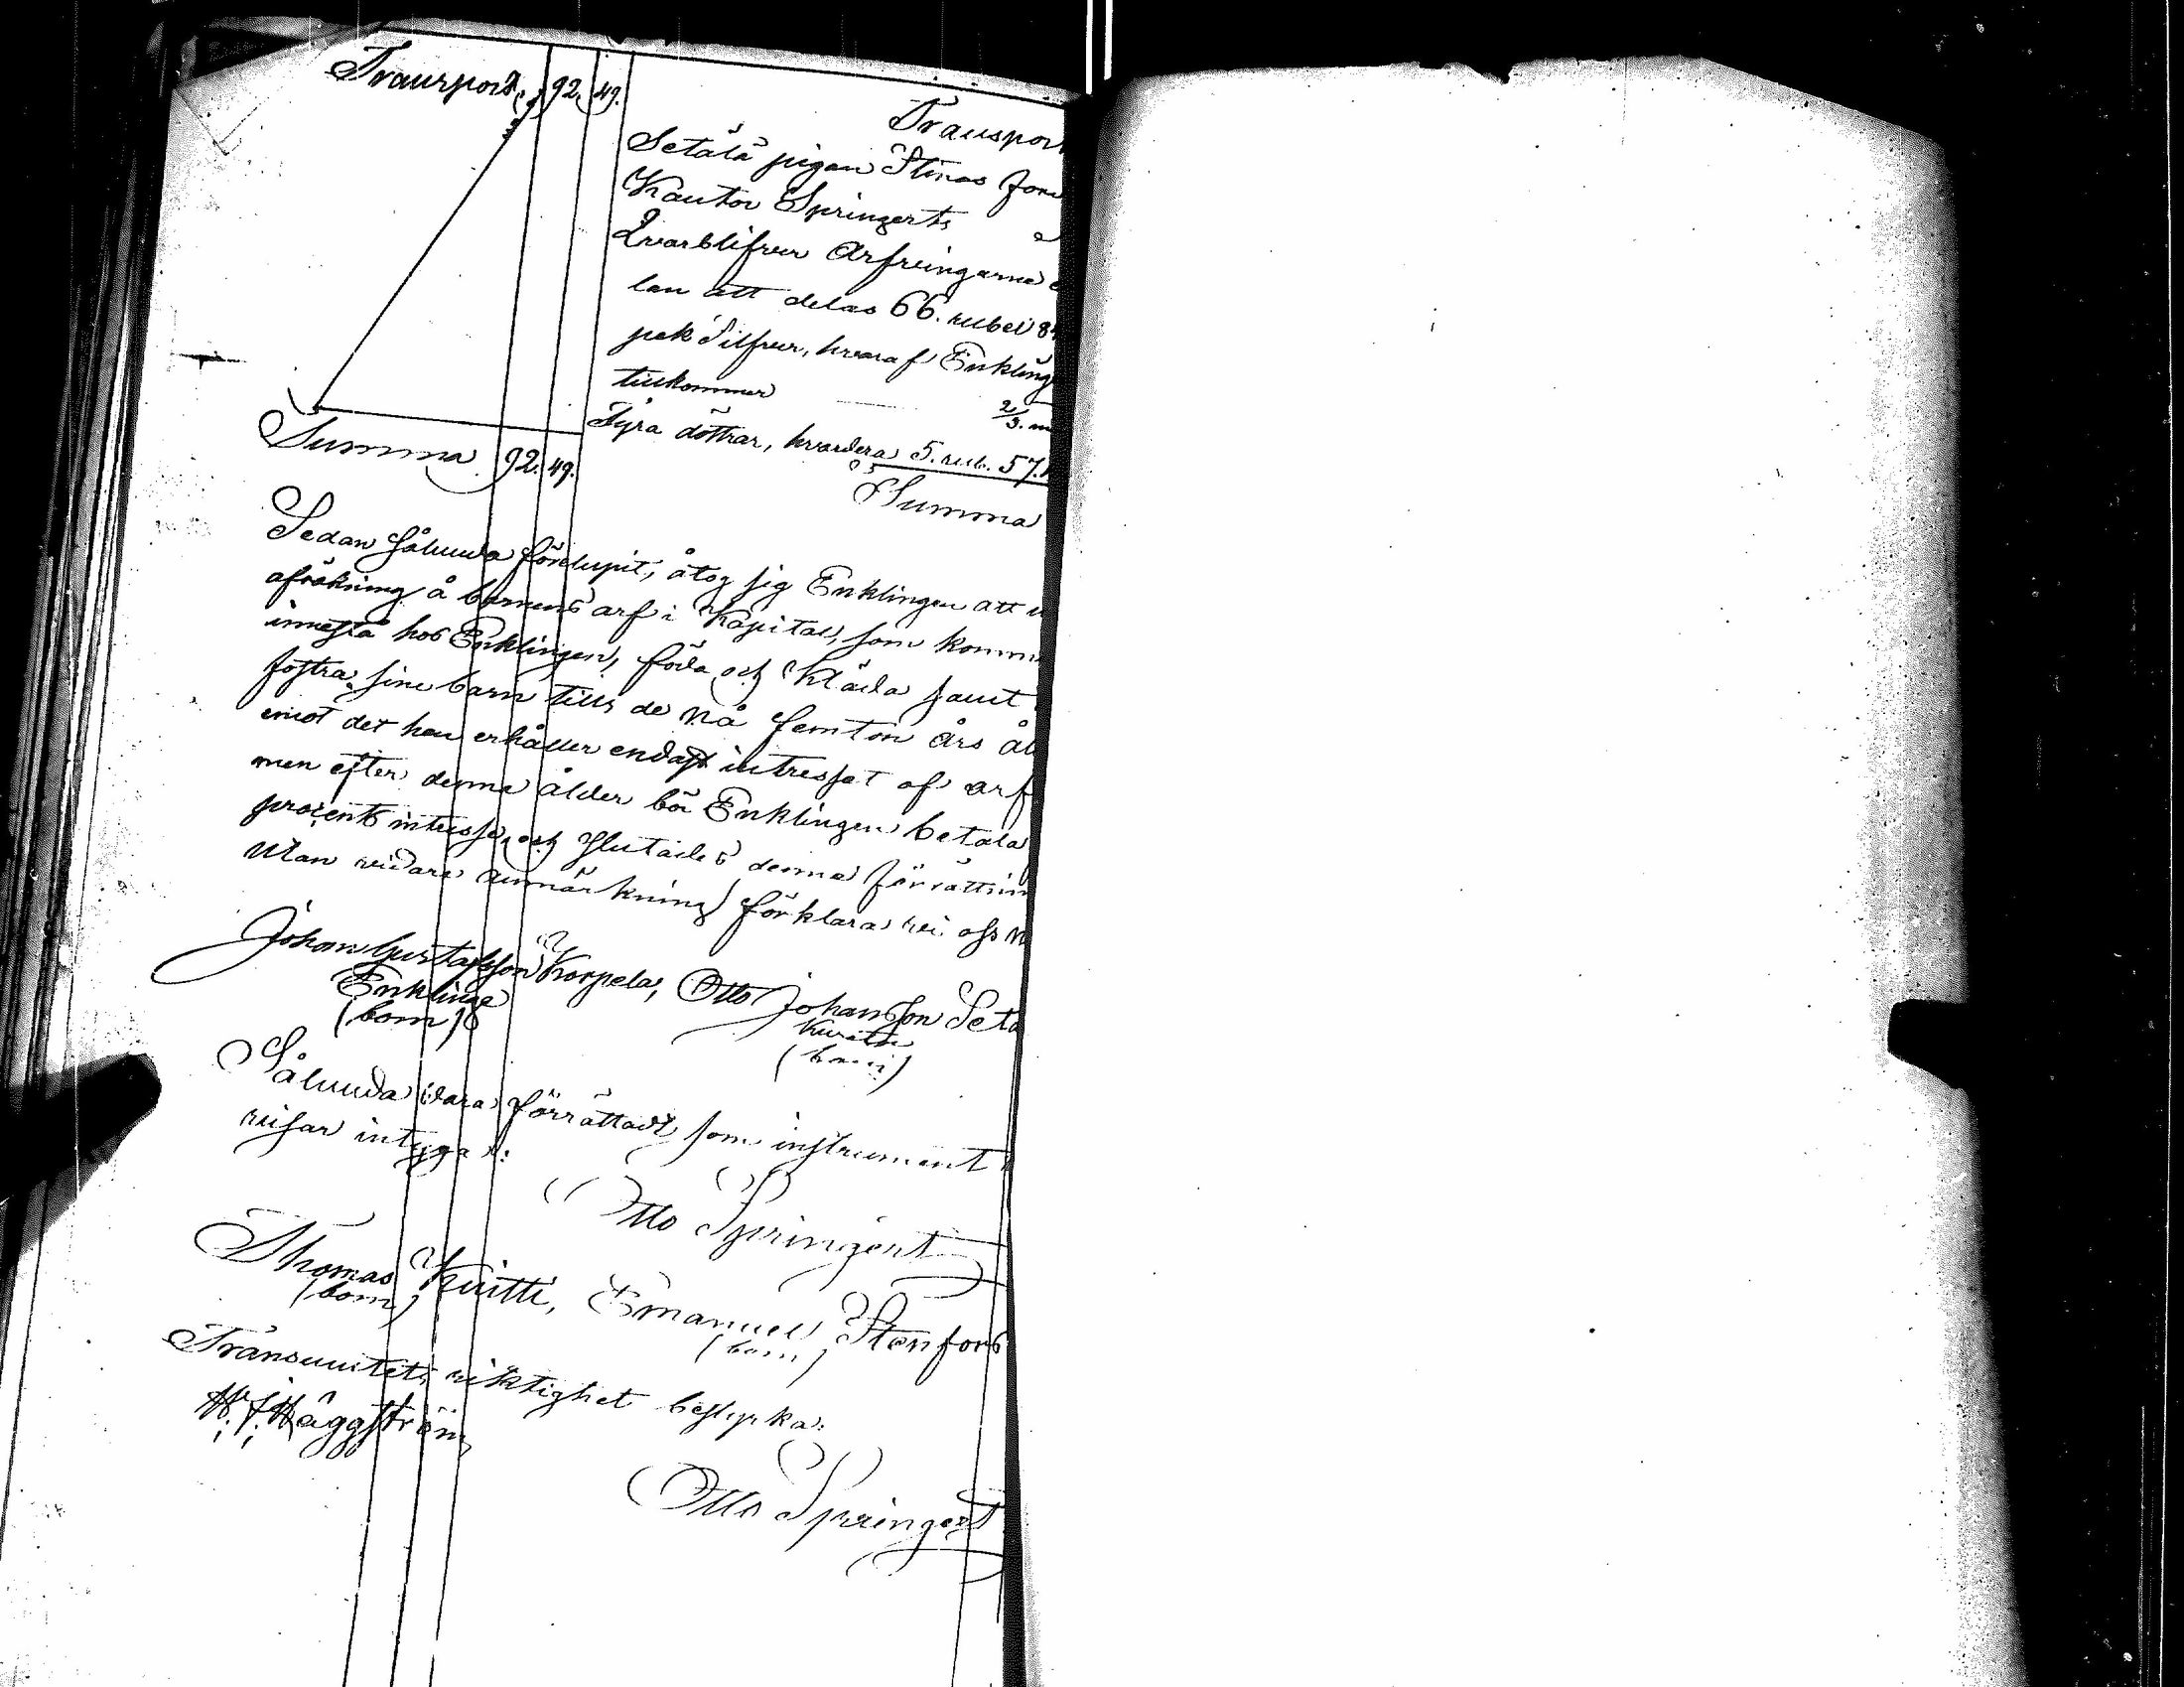 Transport, 92. 49.
Transpor
Setälä pigan Stinas for
Kantor Springerts
Qvarblifver Arfvingarne e
lan att delas 66. rubel 8
pek Silfver, hvaraf Enkling
tillkommer 2/3.
Fyra döttrar, hvardera 5. rub. 57.
Summa 92. 49.
Summa
Sedan sålunda förelupit, åtog sig Enklingen att
afräkning å barnens arf i Kapital, som komm
innestå hos Enklingen, föda och kläda samt
fostra sine barn tills de nå femton års ål
emot det han erhåller endast intresset af arf
men efter denne ålder bör Enklingen betala
procents intresse, och slutades denna förrättnin
Utan vidare anmärkning förklara vi oss n
Johan Gustafsson Korpela, Otto Johansson Setä
Enklinge
(bom)
Kurator
(bom)
Sålunda vara förrättadt som instrument
visar intyga:
Otto Springert
Thomas Knitti, Emanuel Stenfors
(bom) (bom)
Transumtets riktighet bestyrka:
Häggström
Otto Springert